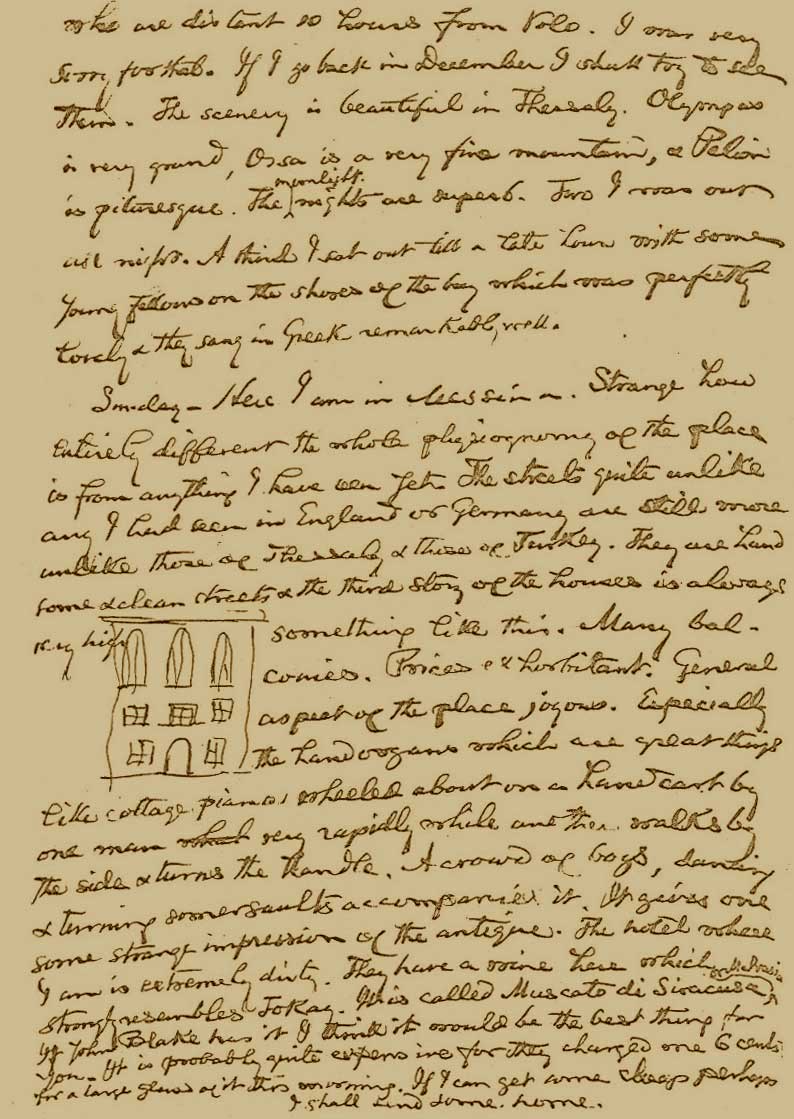 who are distant 10 hours from Volo. I was very
sorry for that. If I go back in December I shall try to see
them. The scenery is beautiful in Thessaly. Olympus
is very grand, Ossa is a very fine mountain, & Pelion
is picturesque. The moonlight nights are superb. Two I was out
all night. A third I sat out till a late hour with some
young fellows on the shores of the bay which was perfectly
lovely & they sang in Greek remarkably well.
Sunday – Here I am in Messina. Strange how
entirely different the whole physiognomy of the place
is from anything I have seen yet. The streets quite unlike
any I had seen in England or Germany are still more
unlike those of Thessaly & those of Turkey. They are hand
some & clean streets & the third story of the houses is always
very high
something like this. Many bal-
conies. Prices exhorbitant. General
aspect of the place joyous. Especially
the hand organs which are great things
like cottage pianos wheeled about on a hand cart by
one man what very rapidly while another walks by
the side & turns the handle. A crowd of boys, dancing
& turning somersaults accompanies it. It gives one
some strange impression of the antique. The hotel where
I am is extremely dirty. They have a wine here which
strongly resembles Tokay. It is called Muscato di Siracusa,
If John Blake has it I think it would be the best thing for
you. It is probably quite expensive for they charged me 6 cents
for a large glass of it this morning. If I can get some cheap perhaps
I shall send some home.